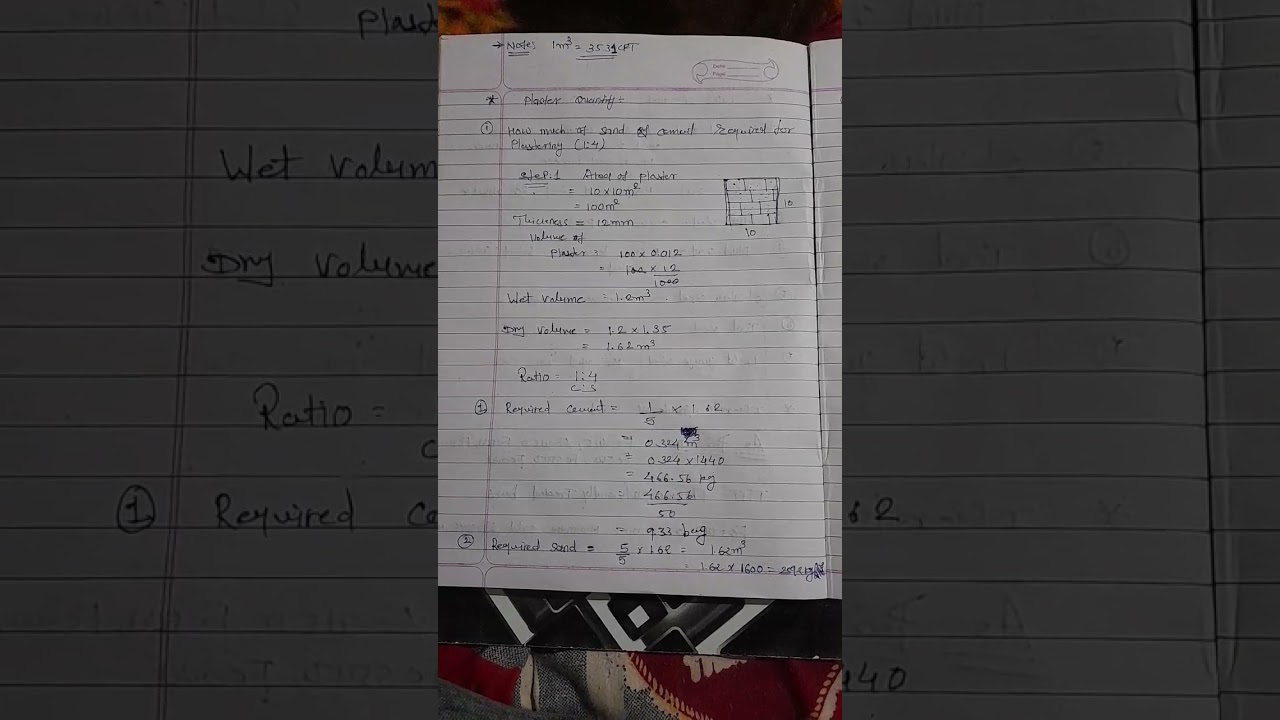 → Notes 1m³ = 3531CFT
Date
Page
* Plaster Quantity :
① How much of sand of cement Required for
Plastering (1:4)
Step:1 Area of plaster
= 10 x 10 m²
= 100m²
10
10
Thickness = 12mm
Volume of
Plaster = 100 x 0.012
= 100 x 12
1000
Wet volume = 1.2m³
Dry volume = 1.2 x 1.35
= 1.62 m³
Ratio = 1:4
C:S
① Required cement = 1 x 1.62
5
= 0.324 m³
= 0.324 x 1440
= 466.56 kg
= 466.56
50
= 933 beig
② Required sand = 5/5 x 1.62 = 1.62m³
= 1.62 x 1600 = 2592 kg
Plast
Wet volum
Dry volume
Ratio =
① Required ce
62
440